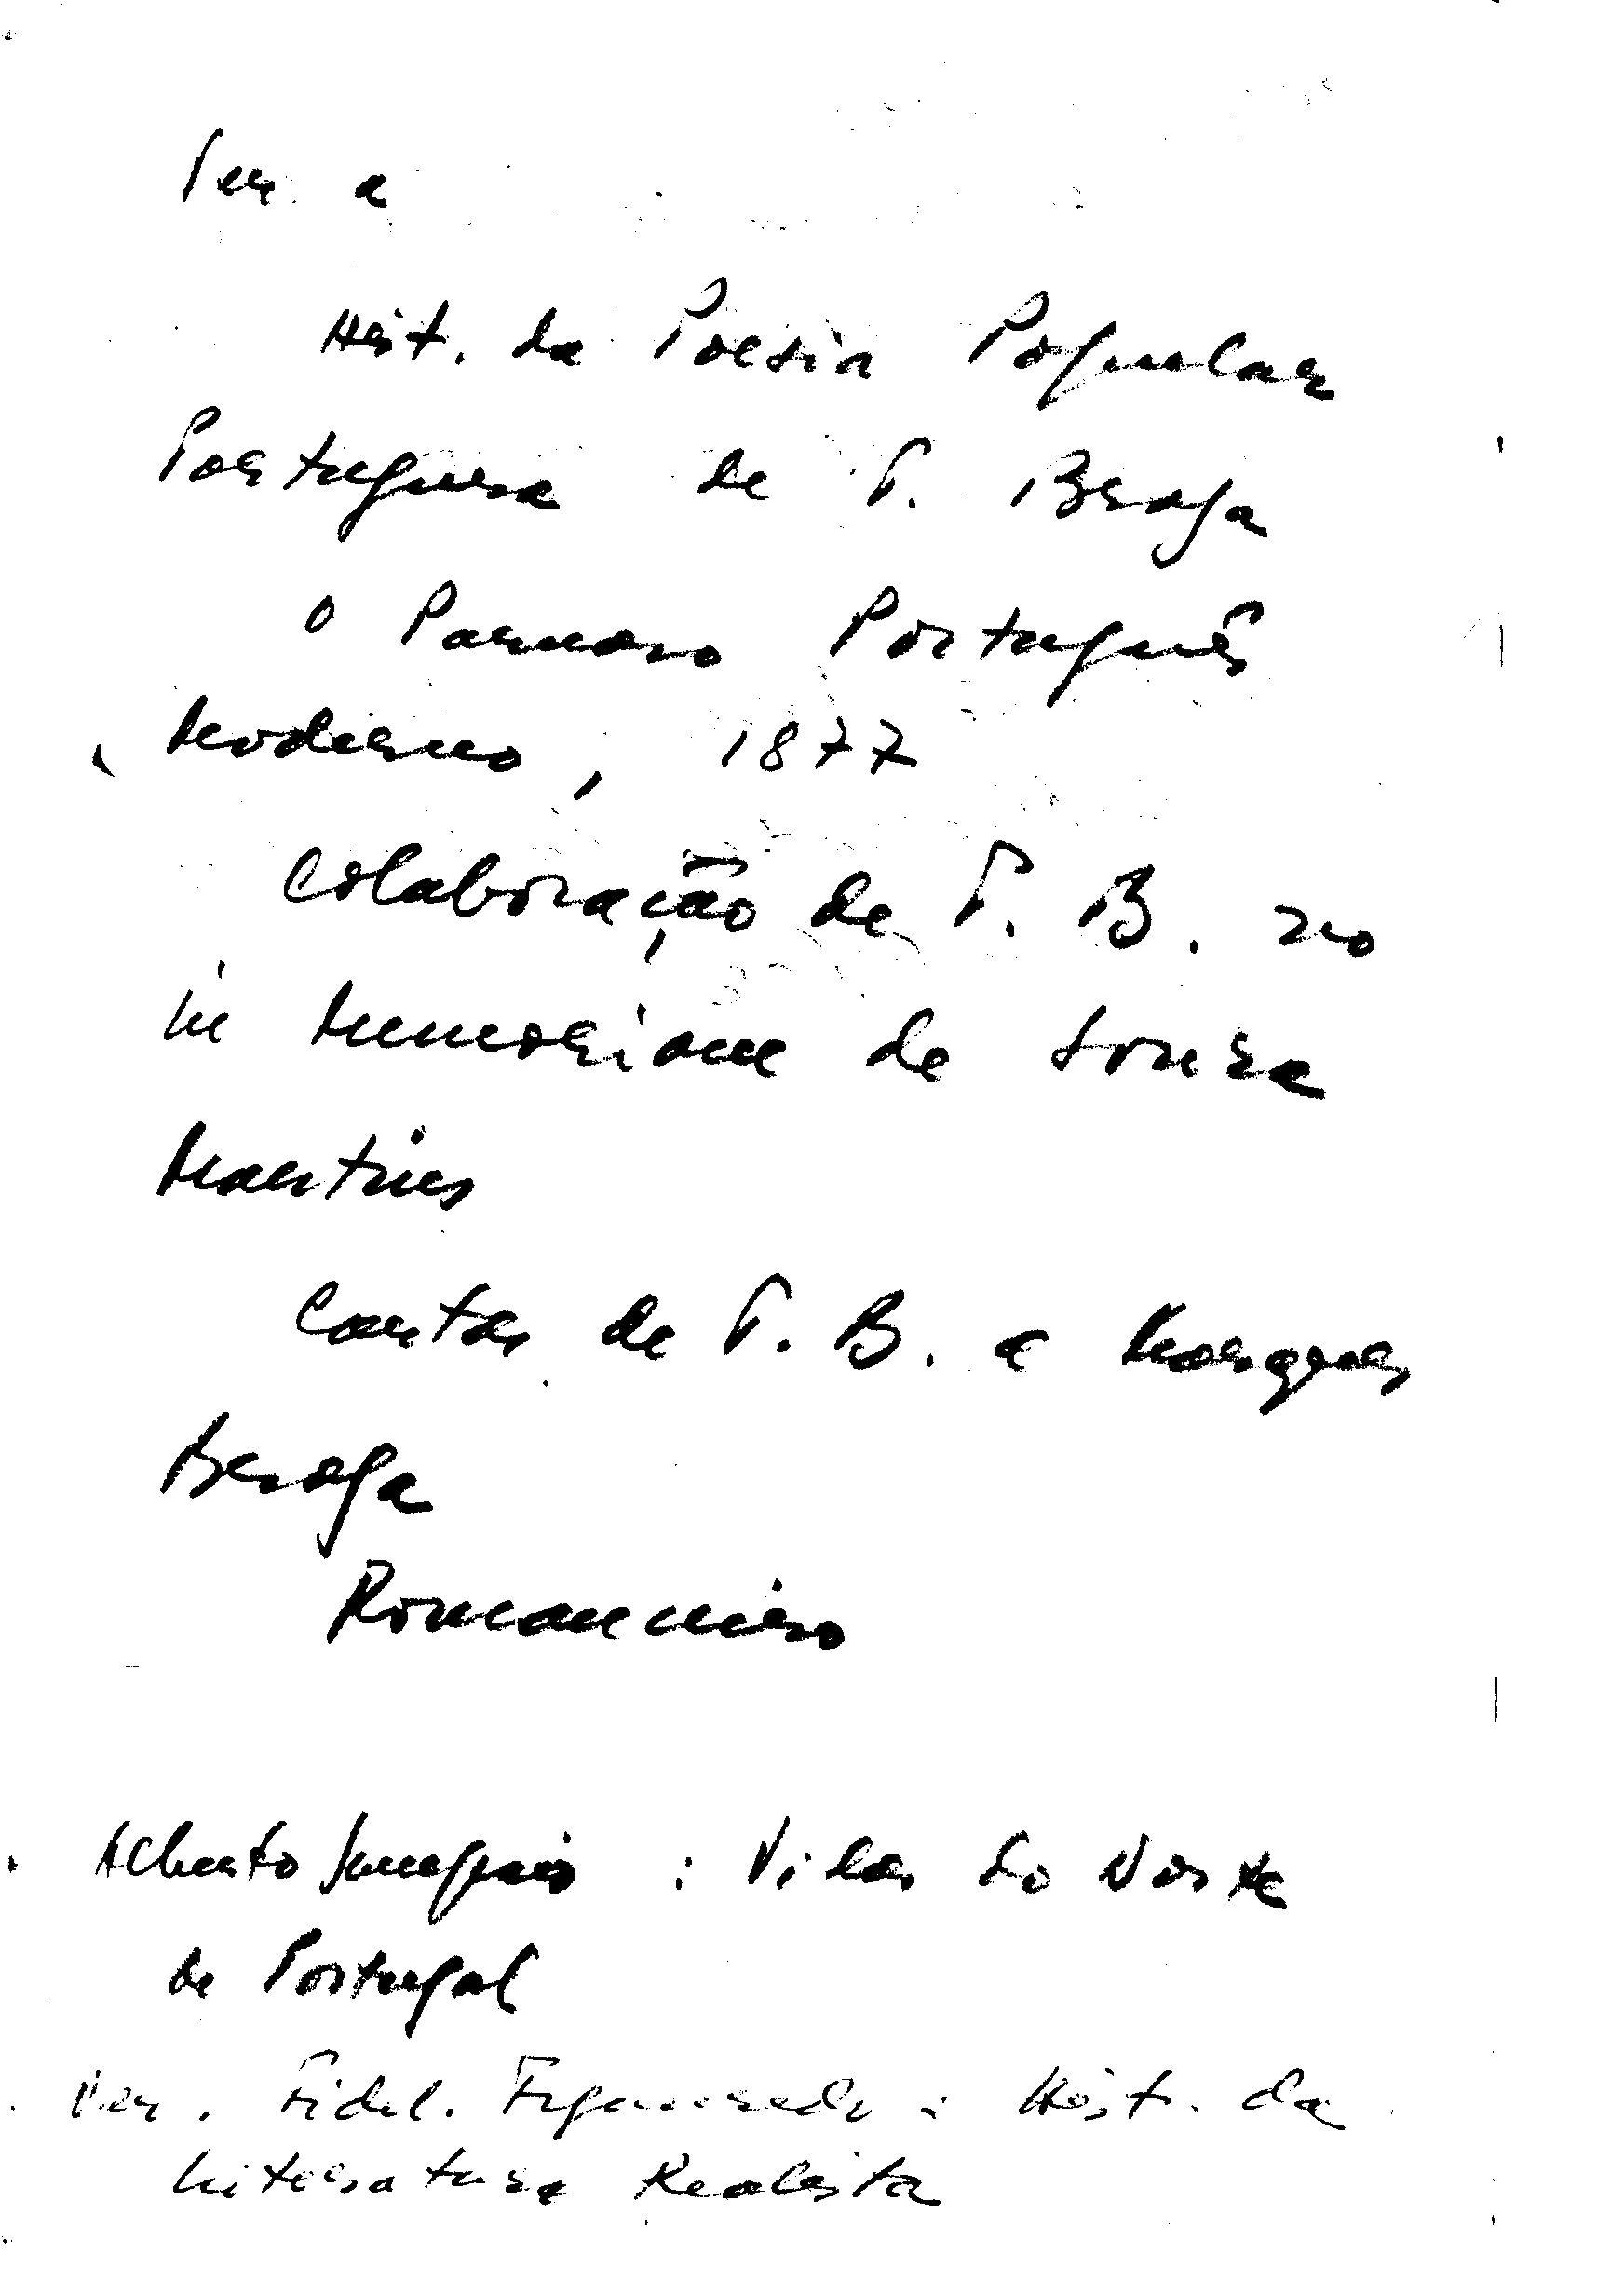 Ver a
Hist. da Poesia Popular
Portuguesa de T. Braga
O Parnaso Português
Moderno, 1877
Colaboração de T. B. no
In Memoriam de Sousa
Martins
Cartas de T. B. a Marques
Braga
Romanceiro
Alberto Sampaio : Vilas do Norte
de Portugal
Ver. Fidel. Figueiredo : Hist. da
Literatura Realista